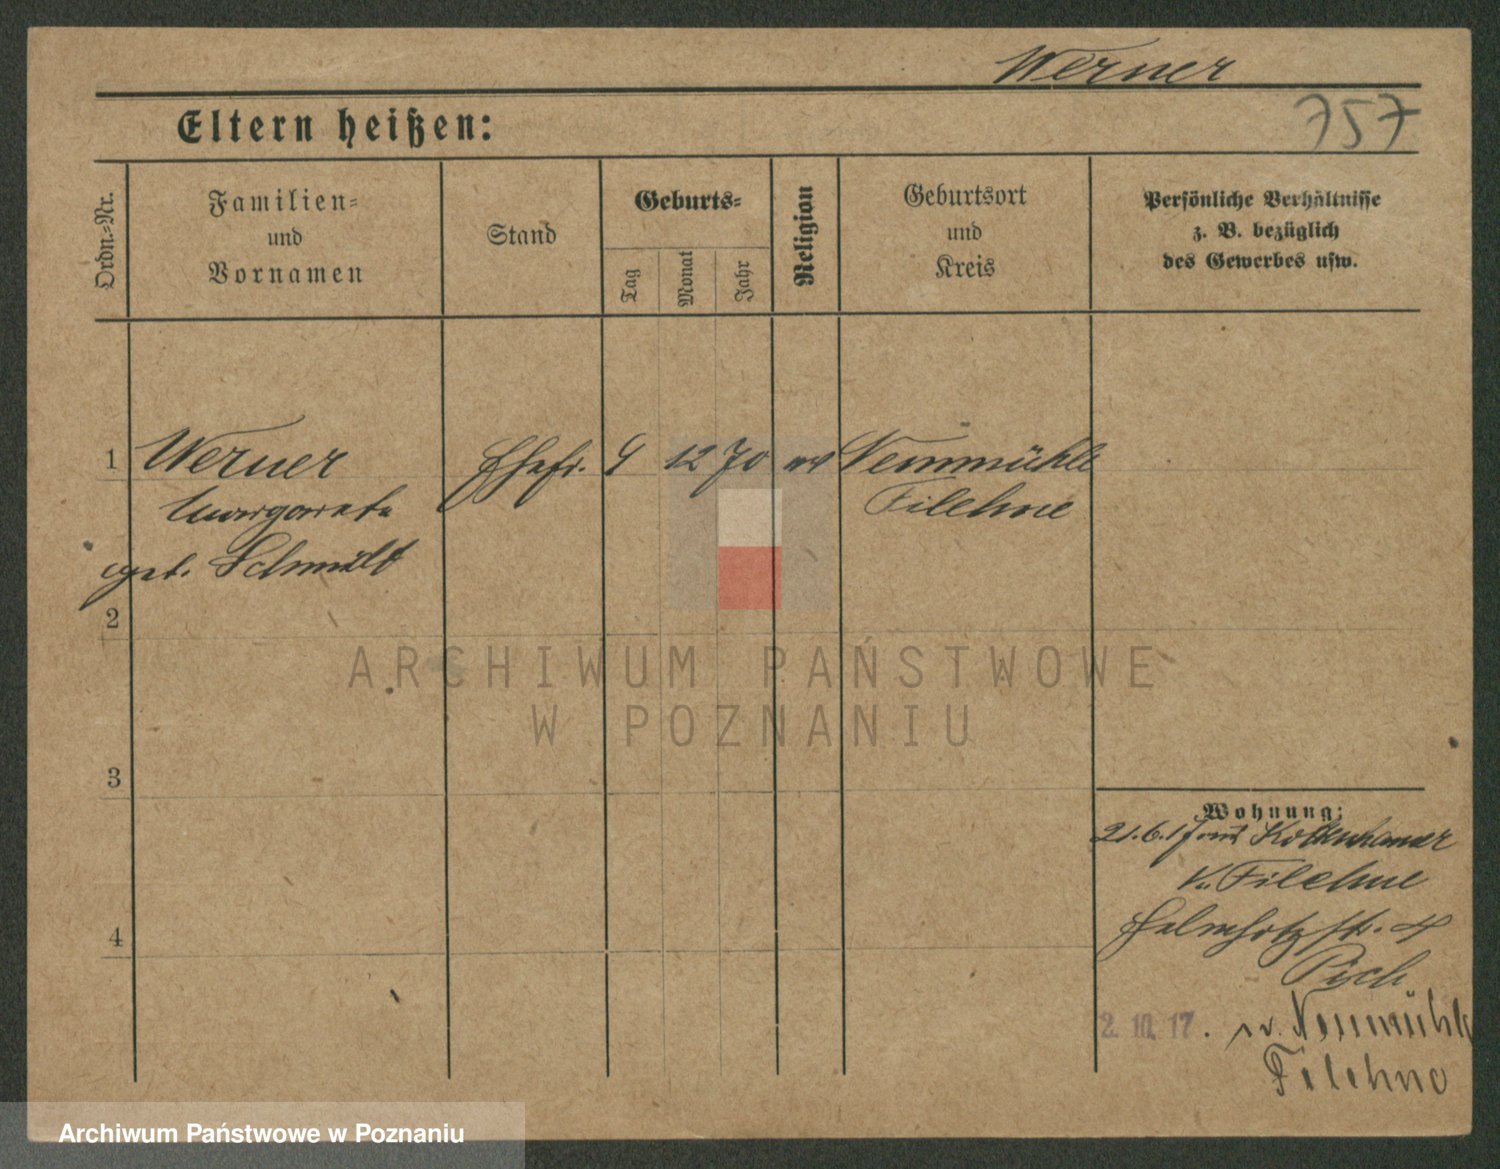 Werner
Eltern heißen:
757
Ordn.-Nr.
Familien- und Vornamen
Stand
Geburts-
Tag
Monat
Jahr
Religion
Geburtsort und Kreis
Persönliche Verhältnisse
z. B. bezüglich
des Gewerbes usw.
1 Werner Ehefr. 9 12 70 ev Neumühle
Margarete Filehne
geb. Schmidt
2
ARCHIWUM PAŃSTWOWE
W POZNANIU
3
Wohnung:
21.6.17 aus
K. Filehne
4
Helmholtzstr. 4
Pich
2. 10. 17. n. Neumühle
Filehne
Archiwum Państwowe w Poznaniu